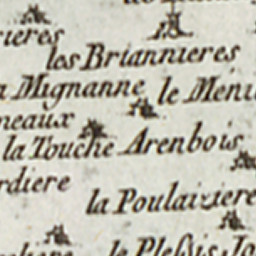 les Briannieres
Mignanne le Menu
meaux
la Touche Arenbois
rdiere
la Poulaiziere
le Plessis Jo